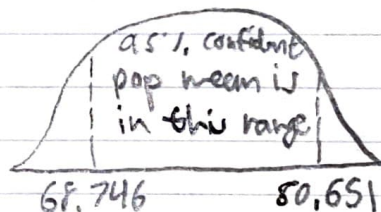 95% confident
pop mean is
in this range
68.746 80.651